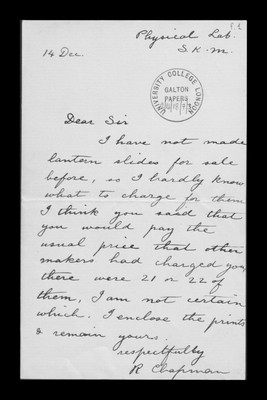 51
Physical Lab.
S.K.M.
14 Dec
UNIVERSITY COLLEGE LONDON
GALTON
PAPERS
Dear Sir
I have not made
lantern slides for sale
before, so I hardly know
what to charge for them
I think you said that
you would pay the
usual price that other
makers had charged you,
there were 21 or 22 of
them, I am not certain
which. I enclose the prints
& remain yours.
respectfully
R Chapman